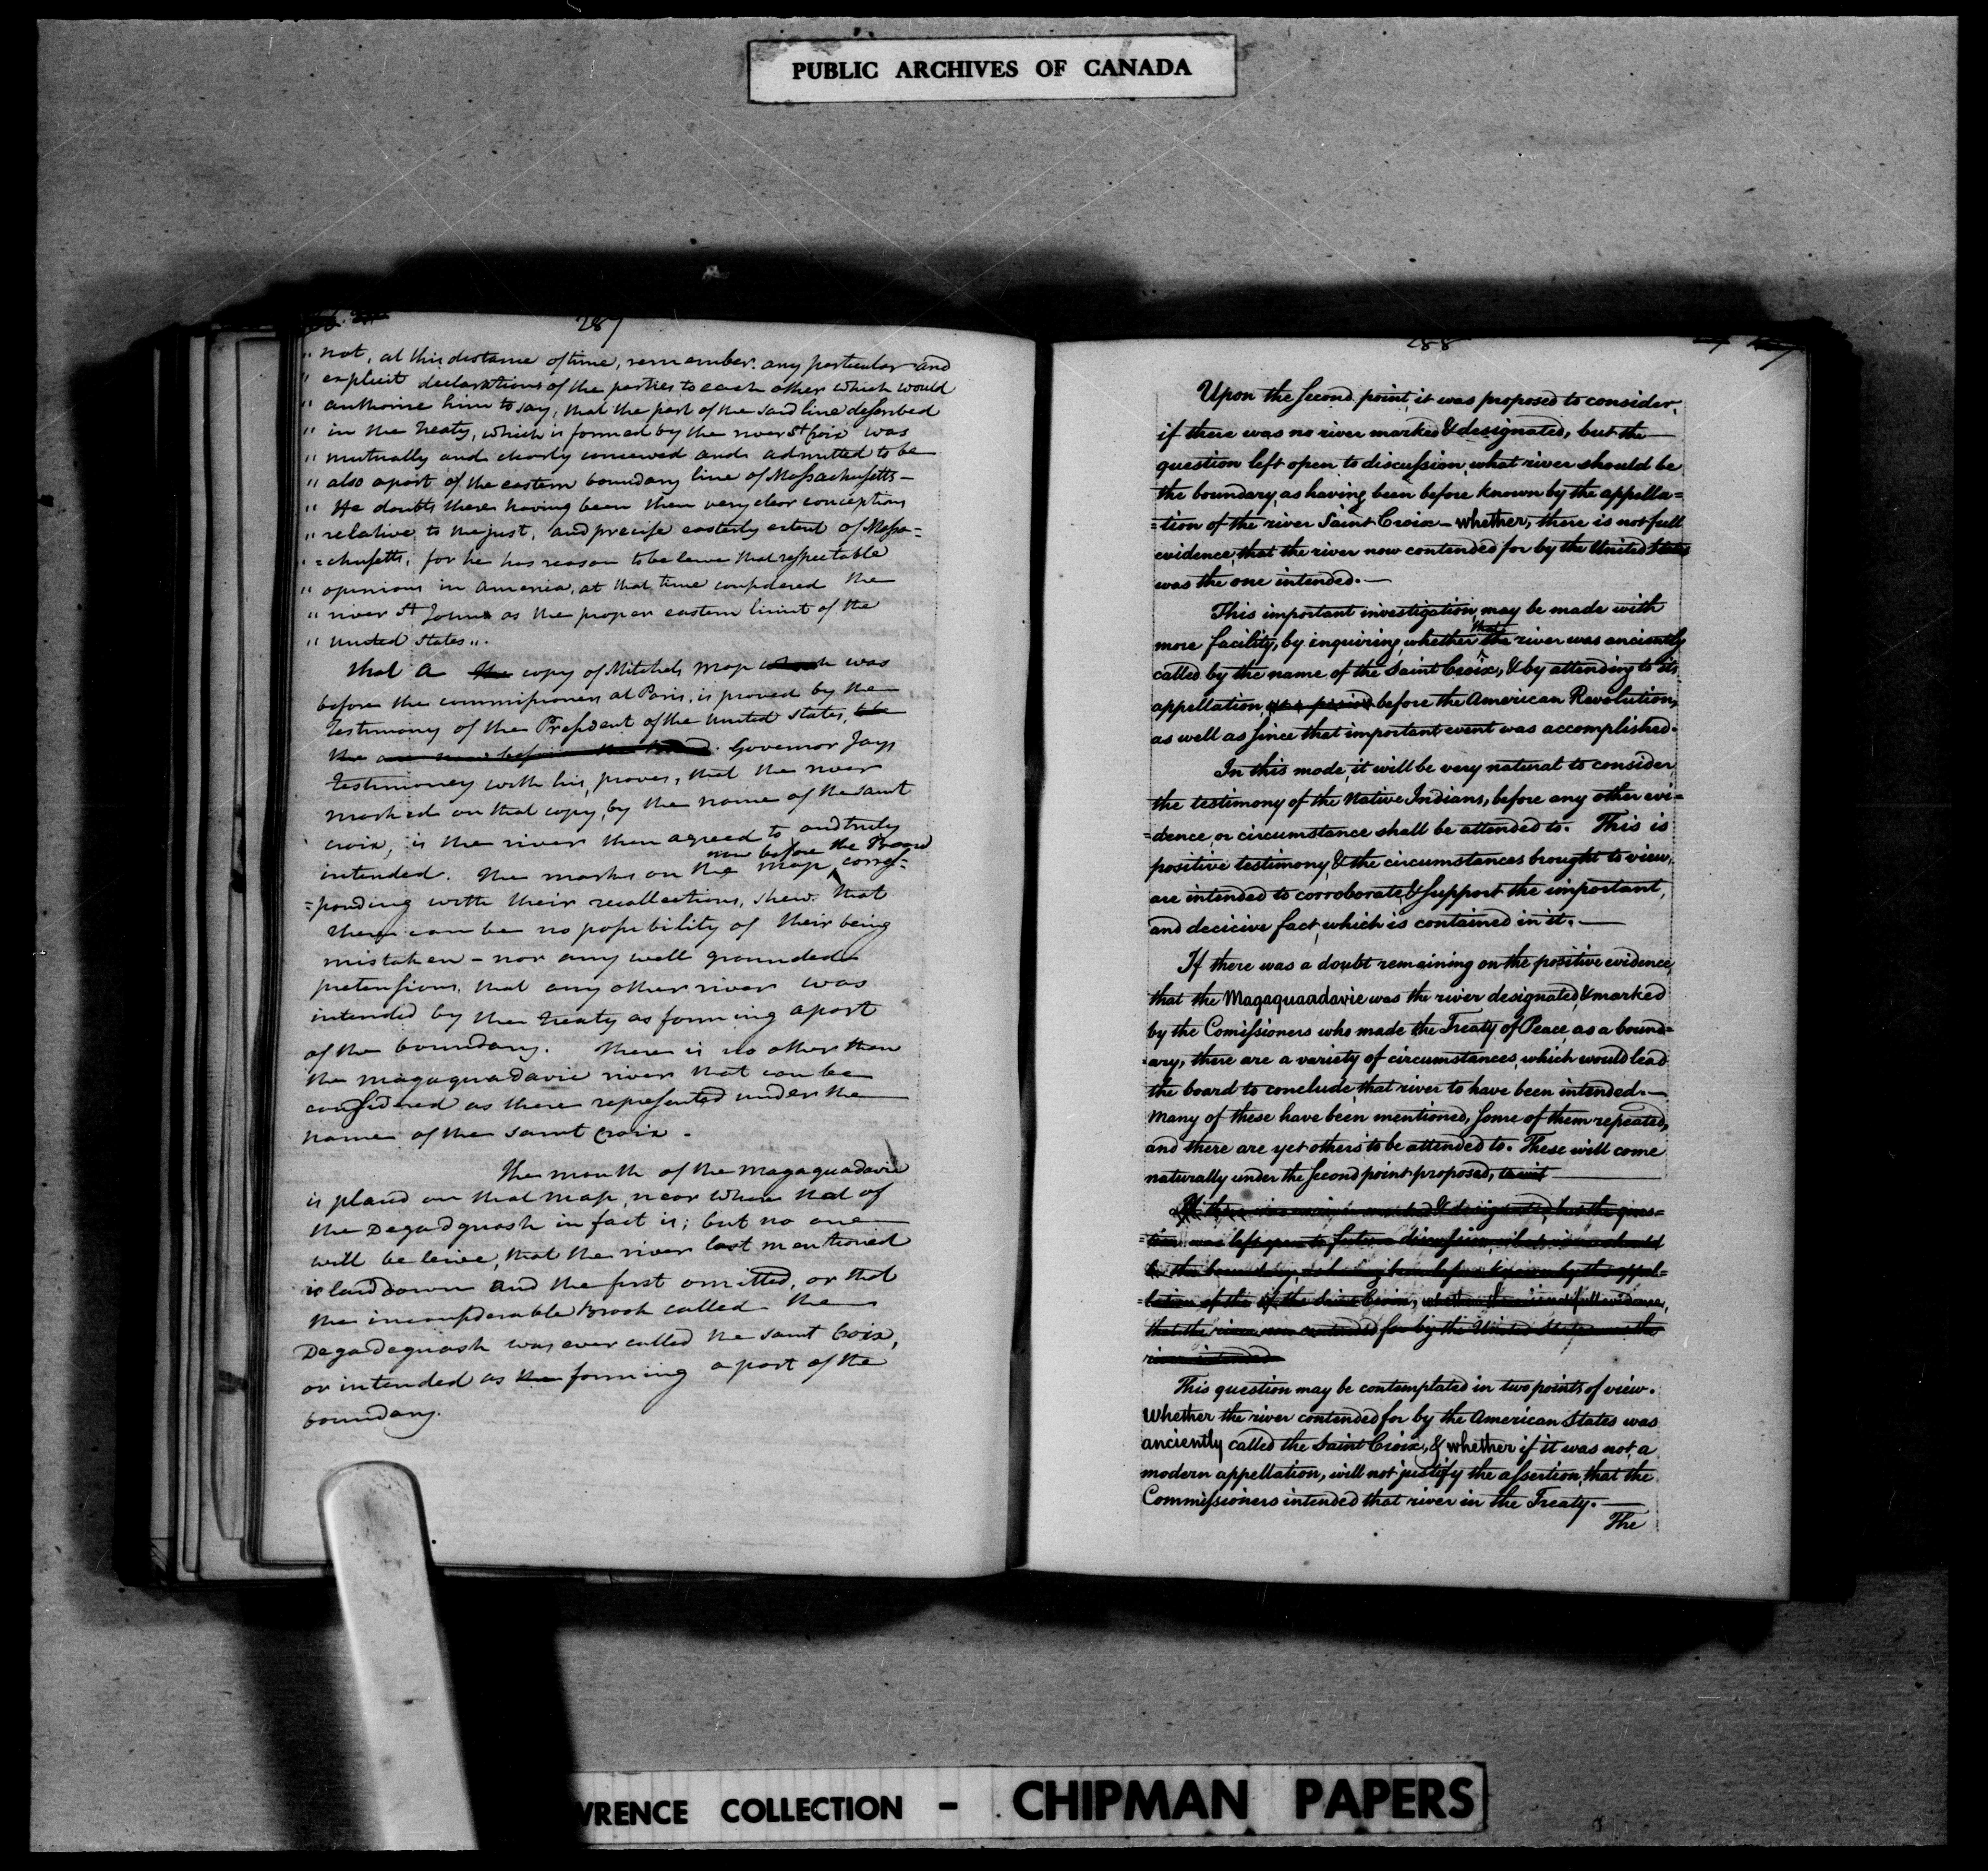 PUBLIC ARCHIVES OF CANADA
287
" not, at this distance of time, remember any particular and
" explicit declarations of the parties to each other which would
" authorise him to say, that the part of the said line described
" in the Treaty, which is formed by the river St Croix was
" mutually and clearly conceived and admitted to be
" also a part of the eastern boundary line of Massachusetts –
" He doubts there having been then very clear conceptions
" relative to the just, and precise easterly extent of Massa=
" =chusetts, for he has reason to beleive that respectable
" opinions in America, at that time considered the
" river St Johns as the proper eastern limit of the
" United States".
that a the copy of Mitchels map which was
before the commissioners at Paris, is proved by the
Testimony of the President of the United States, to be
the one now before the Board. Governor Jays
Testimoney with his, proves, that the river
marked on that copy, by the name of the saint
croix, is the river then agreed to and truly
now before the Board
intended. The marks on the map, corres=
=ponding with their recollections, shew that
there can be no possibility of their being
mistaken – nor any well grounded
pretensions, that any other river was
intended by the Treaty as forming a part
of the boundary. There is no other than
the magaguadavic river that can be
considered as there represented under the
name of the saint croix.
The mouth of the magaguadavic
is placed on that map, near where that of
the Degadguash in fact is; but no one
will beleive, that the river last mentioned
is laid down and the first omitted, or that
the inconsiderable Brook called the
Degadeguash was ever called the saint Croix,
or intended as the forming a part of the
boundary.
288
Upon the second point, it was proposed to consider,
if there was no river marked & designated, but the
question left open to discussion, what river should be
the boundary, as having been before known by the appella=
=tion of the river Saint Croix – whether, there is not full
evidence, that the river now contended for by the United States
was the one intended. —
This important investigation, may be made with
that
more facility, by inquiring, whether the river was anciently
called by the name of the Saint Croix, & by attending to its
appellation, at a period before the American Revolution,
as well as since that important event was accomplished.
In this mode, it will be very natural to consider,
the testimony of the Native Indians, before any other evi=
=dence, or circumstance shall be attended to. This is
positive testimony, & the circumstances brought to view,
are intended to corroborate & support the important,
and decicive fact, which is contained in it. —
If there was a doubt remaining on the positive evidence,
that the Magaquaadavic was the river designated, & marked
by the Comissioners who made the Treaty of Peace, as a bound=
=ary, there are a variety of circumstances, which would lead
the board to conclude, that river to have been intended. —
Many of these have been mentioned, some of them repeated,
and there are yet others to be attended to. These will come
naturally under the second point proposed, to wit
If there was no river marked & designated, but the ques=
=tion was left open to future discussion, what river should
be the boundary, as having been before known by the appel=
=lation of the of the Saint Croix, whether there is not full evidence,
that the river now contended for by the United States was the
river intended
This question may be contemplated in two points of view.
Whether the river contended for by the American States was
anciently called the Saint Croix, & whether if it was not, a
modern appellation, will not justify the assertion, that the
Commissioners intended that river in the Treaty. —
The
WRENCE COLLECTION - CHIPMAN PAPERS